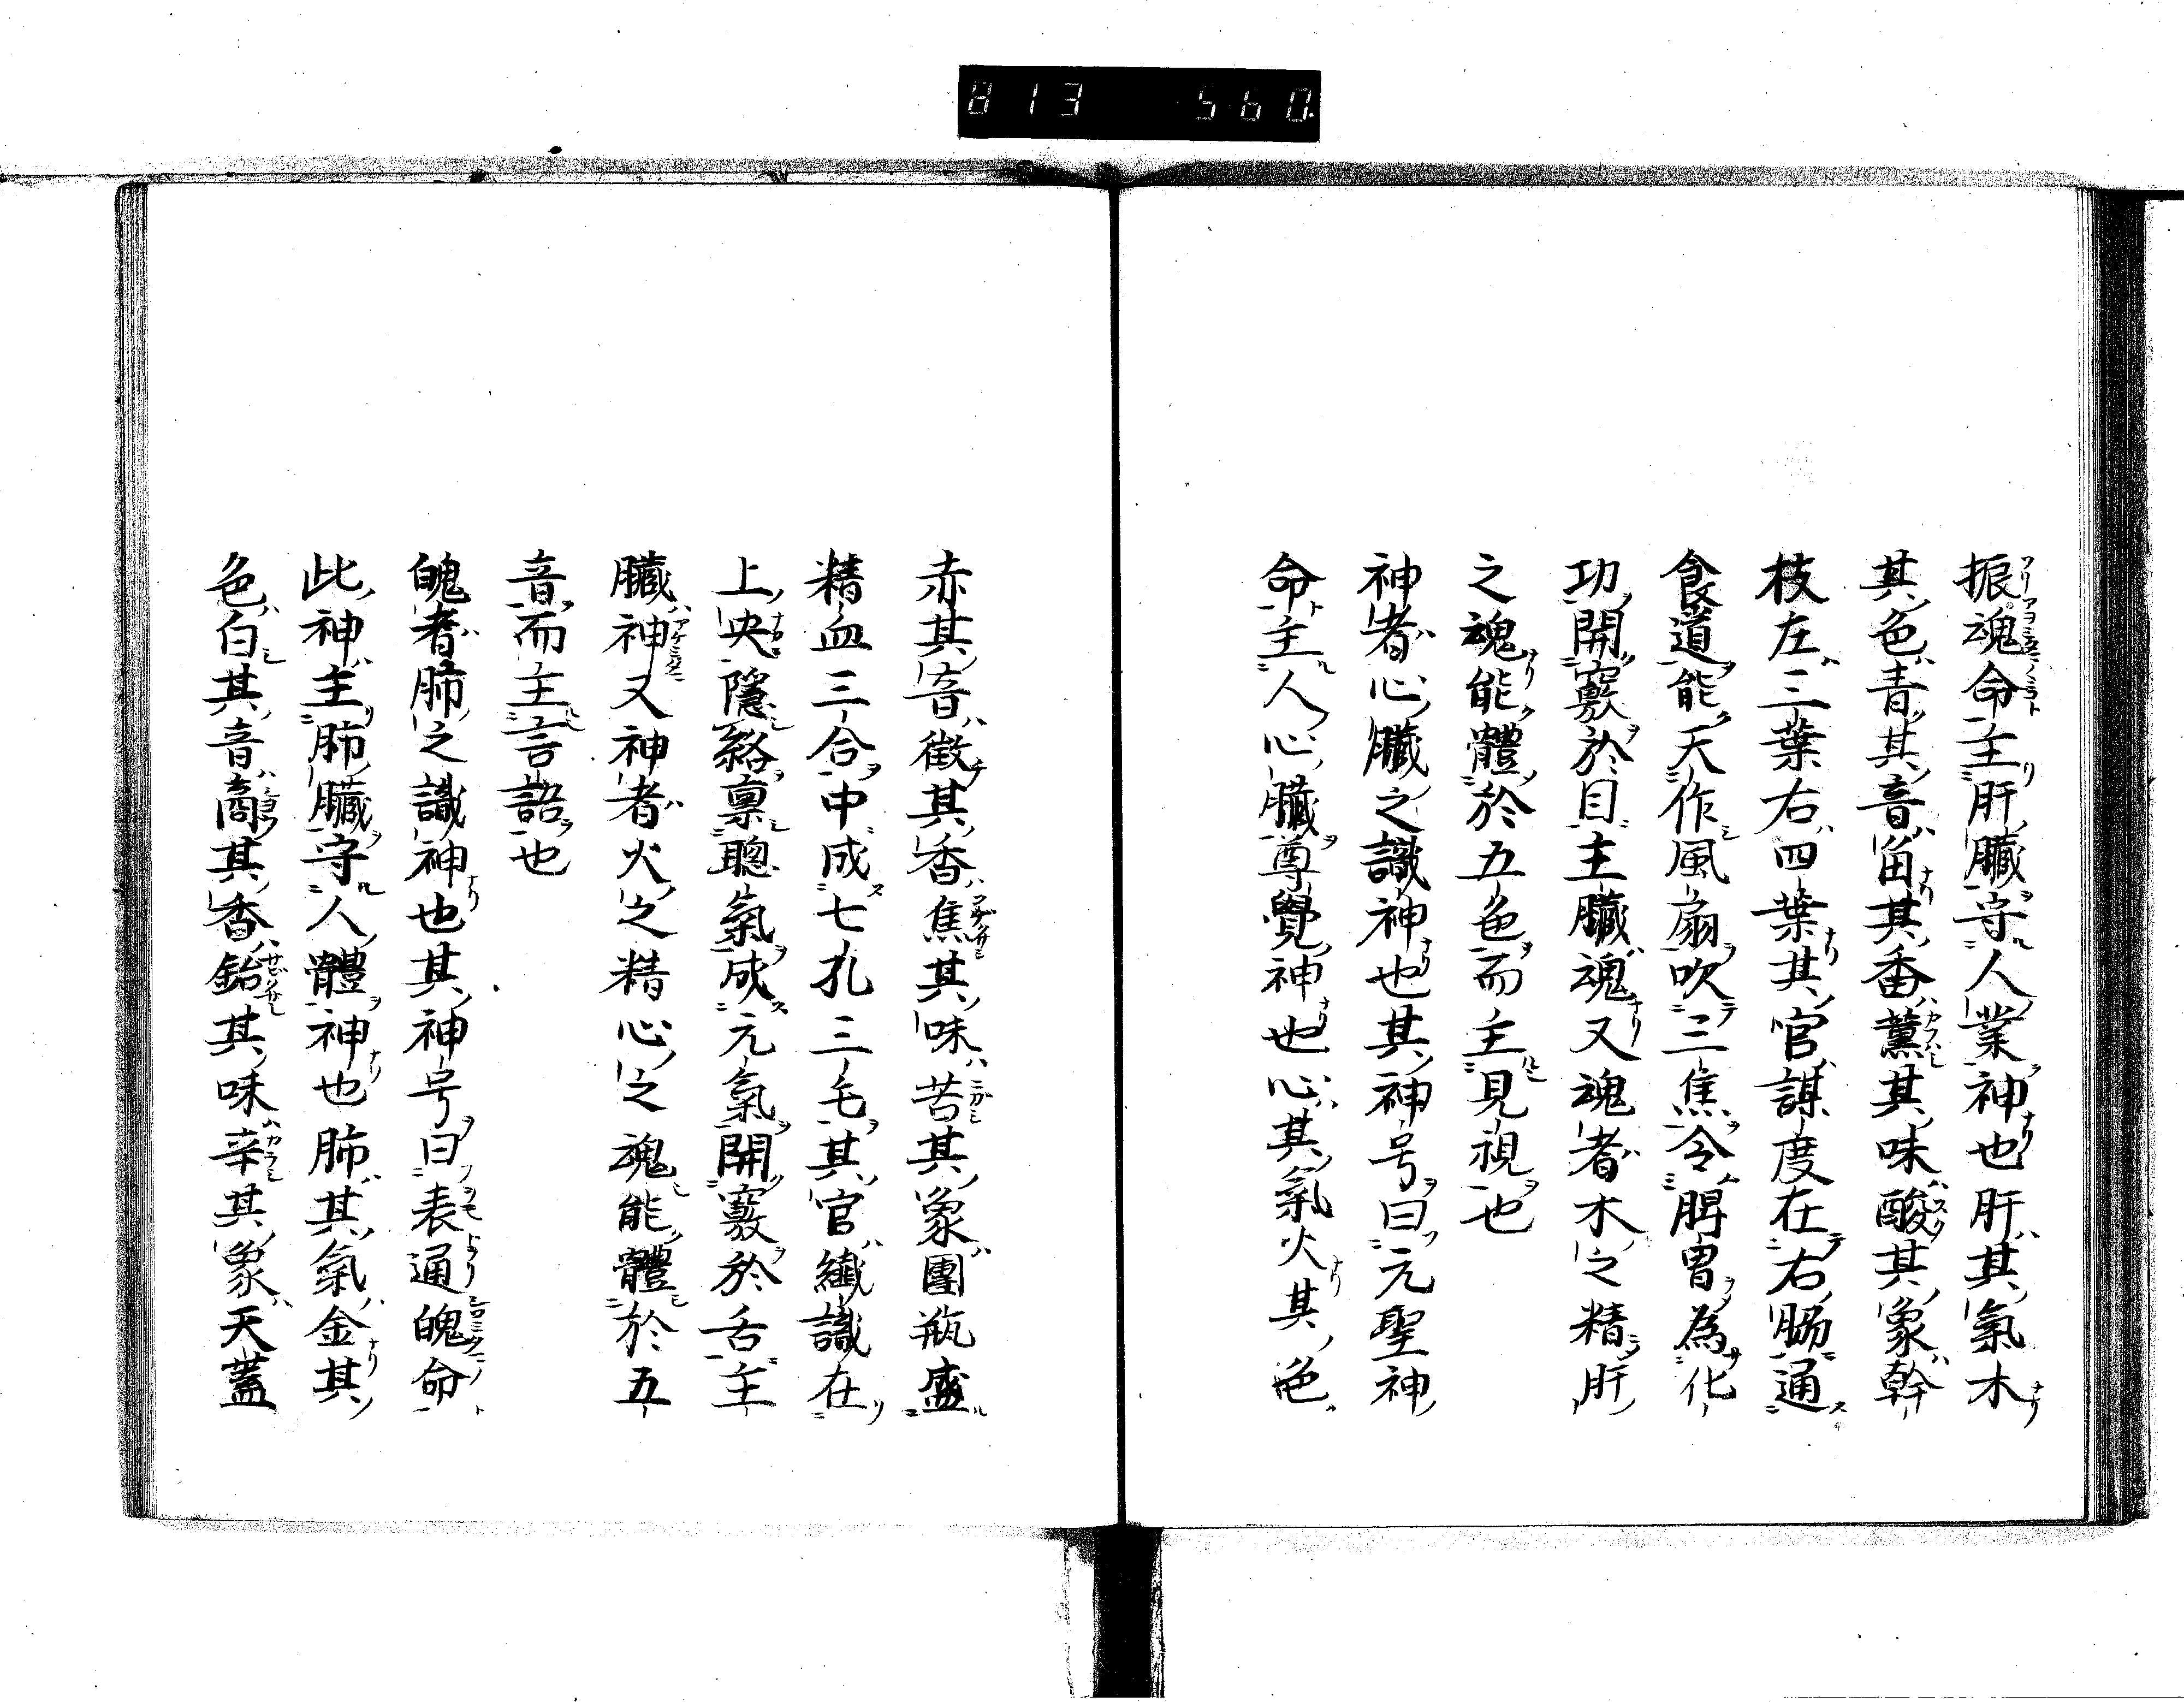 813 560
振魂命主肝臓守人業神也肝其氣木
其色青其音笛其香薫其味酸其象幹
枝左三葉右四葉其官謀度在右腸通
食道能天作風扇吹三焦令脾胃為化
功開竅於目主臓魂又魂者木之精肝
之魂能體於五色而主見視也
神者心臓之識神也其神号曰元聖神
命主人心臓尊覺神也心其氣火其色
赤其音徴其香焦其味苦其象團瓶盛
精血三合中成七孔三毛其官纎識在
上央隱絡稟聰氣成元氣開竅於舌主
臓神又神者火之精心之魂能體於五
音而主言語也
魄者肺之識神也其神号曰表通魄命
此神主肺臓守人體神也肺其氣金其
色白其音商其香鉛其味辛其象天蓋